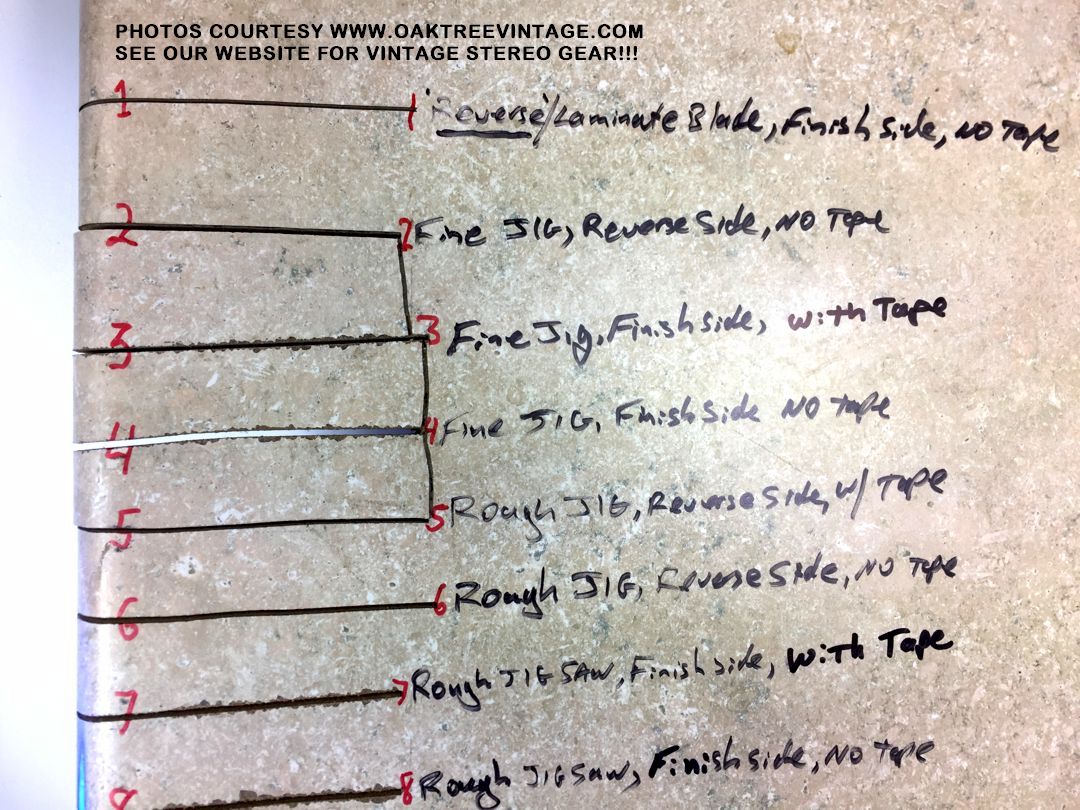 PHOTOS COURTESY WWW.OAKTREEVINTAGE.COM
SEE OUR WEBSITE FOR VINTAGE STEREO GEAR!!!
1 1 "Reverse"/Laminate Blade, Finish side, NO Tape
2 2 Fine JIG, Reverse Side, NO Tape
3 3 Fine Jig, Finish side, with Tape
4 4 Fine JIG, Finish Side NO tape
5 5 Rough JIG, Reverse Side, w/ TAPE
6 6 Rough JIG, Reverse Side, NO Tape
7 7 Rough JIG SAW, Finish side, With Tape
8 8 Rough JIGSaw, Finish side, NO Tape